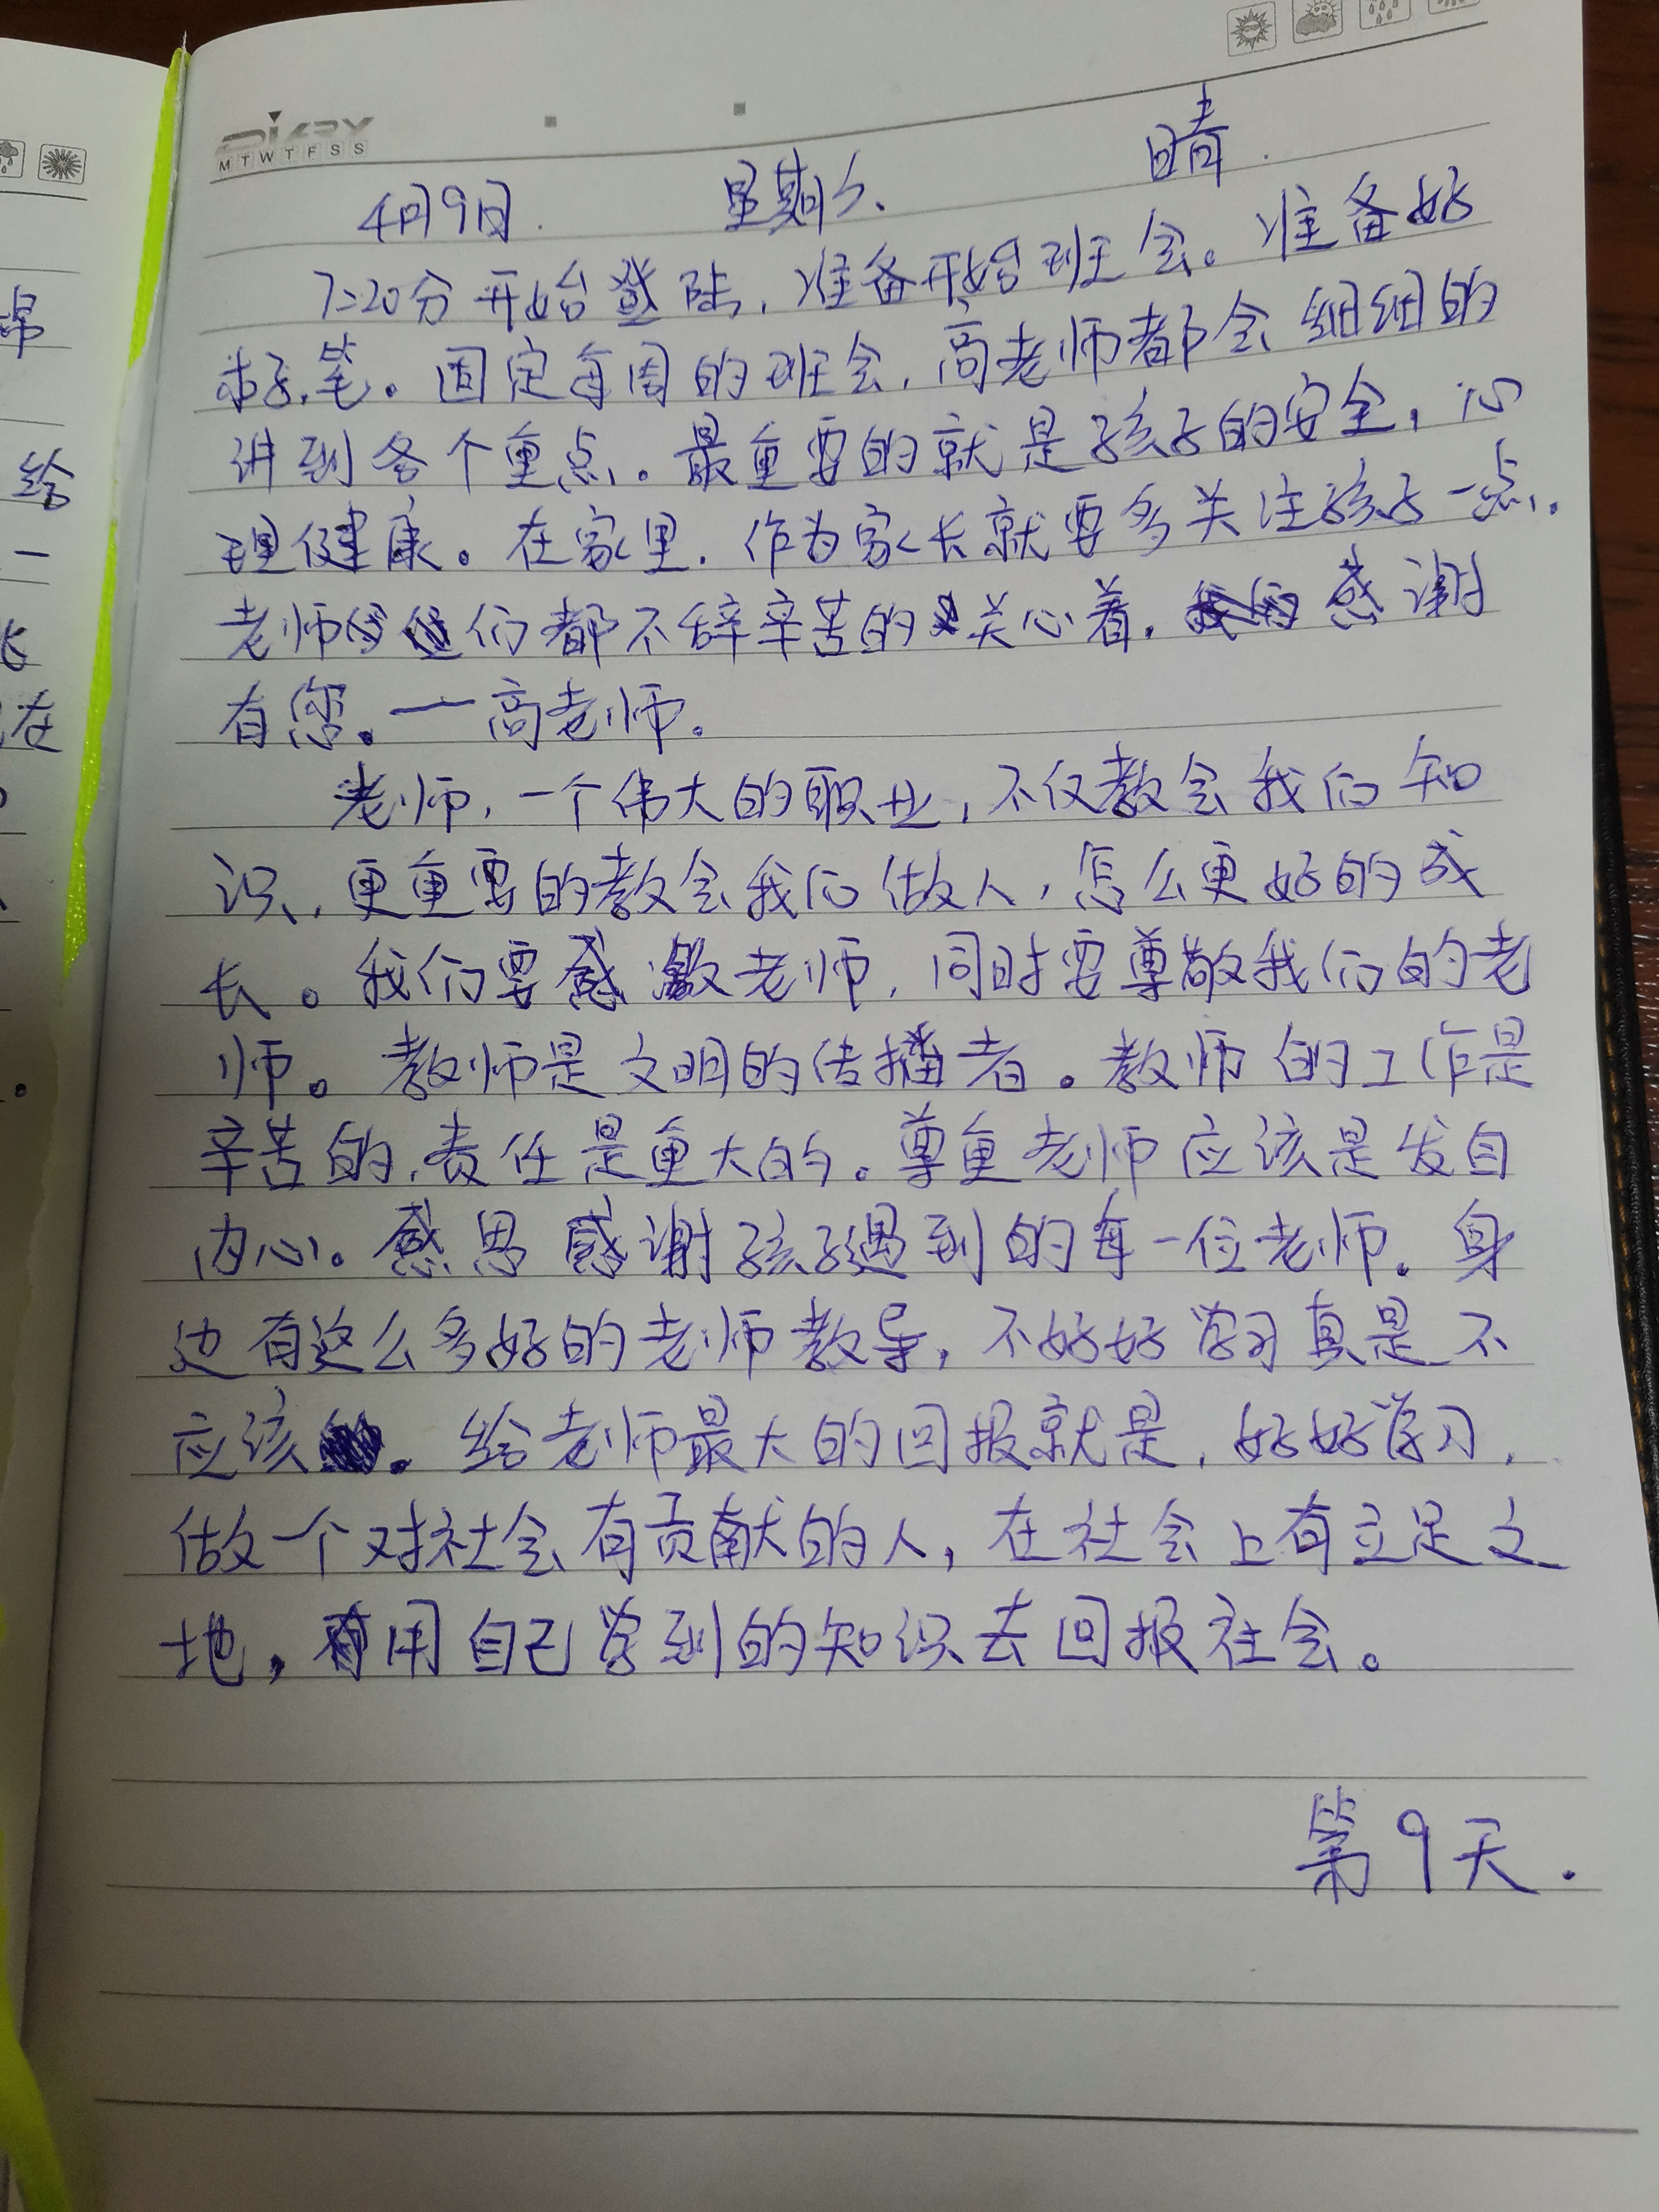 DIARY
M T W T F S S
4月9日. 星期六. 晴.
7:20分开始登陆,准备开始班会。准备好
本子,笔。固定每周的班会,高老师都会细细的
讲到各个重点。最重要的就是孩子的安全,心
理健康。在家里.作为家长就要多关注孩子一点.
老师 们都不辞辛苦的关心着. 感谢
有您。一高老师.
老师,一个伟大的职业,不仅教会我们知
识,更重要的教会我们做人,怎么更好的成
长。我们要感激老师,同时要尊敬我们的老
师。教师是文明的传播者。教师的工作是
辛苦的,责任是重大的。尊重老师应该是发自
内心。感恩感谢孩子遇到的每一位老师.身
边有这么多好的老师教导,不好好学习真是不
应该。给老师最大的回报就是,好好学习,
做一个对社会有贡献的人,在社会上有立足之
地,用自己学到的知识去回报社会。
第9天.
绵
给
一
长
在